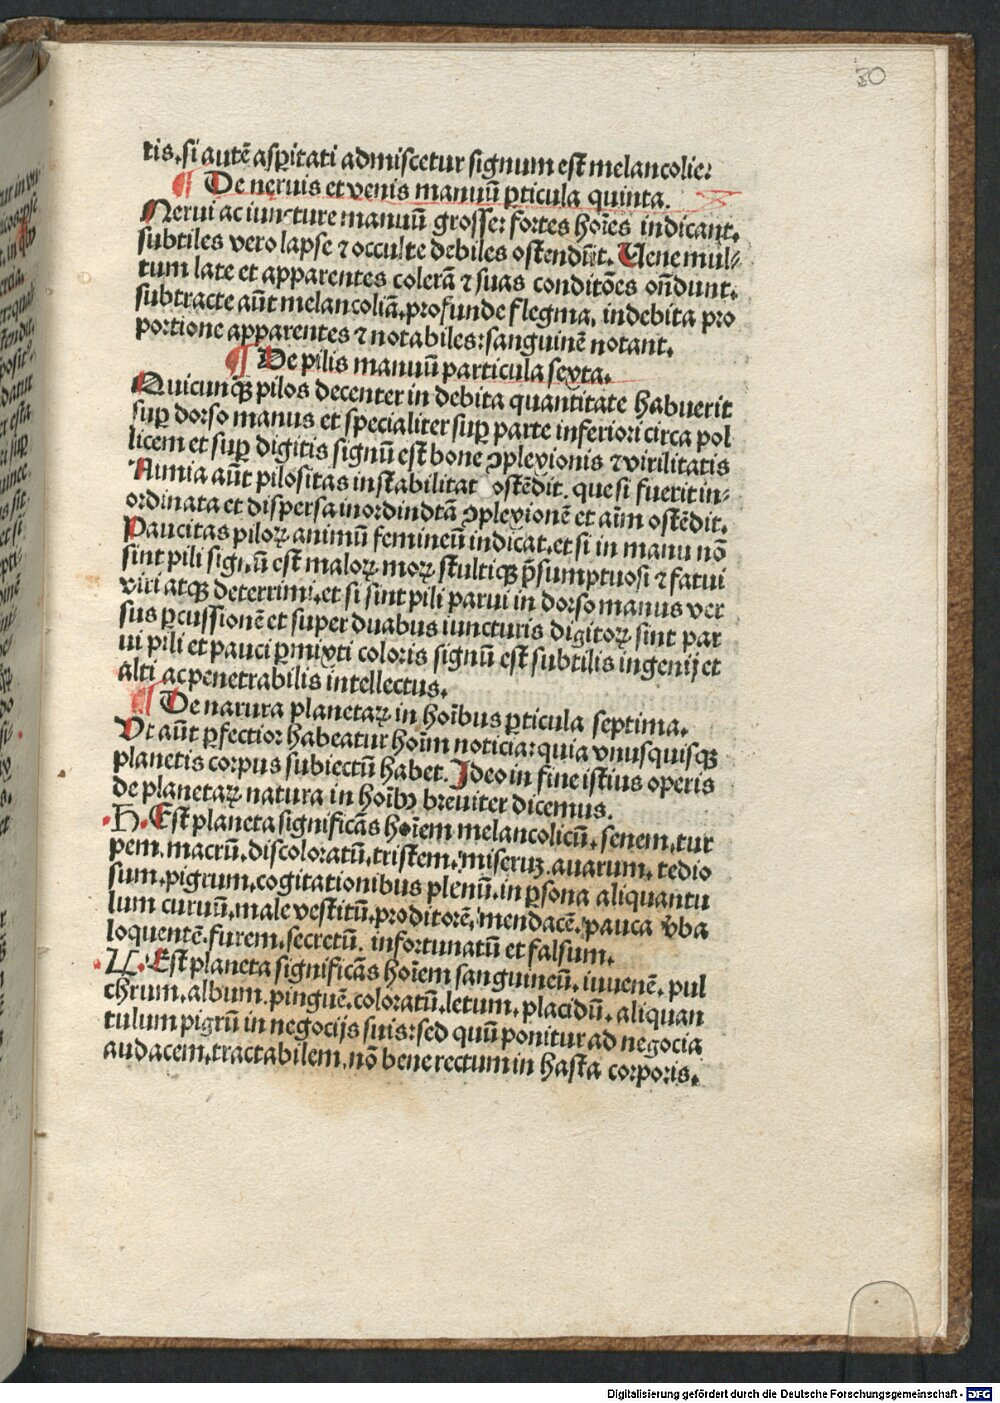 30
tis. si autē asꝑitati admiscetur signum est melancolie:
¶ De neruis et venis manuū ꝑticula quinta.
Nerui ac iuncture manuū grosse: fortes hoīes indicant.
subtiles vero lapse ⁊ occulte debiles ostendūt. Uene mul⸗
tum late et apparentes colerā ⁊ suas conditōes on̄dunt.
subtracte aūt melancoliā. profunde flegma, in debita pro
portione apparentes ⁊ notabiles: sanguinē notant.
¶ De pilis manuū particula sexta.
Quicunqꝫ pilos decenter in debita quantitate habuerit
suꝑ dorso manus et specialiter suꝑ parte inferiori circa pol
licem et suꝑ digitis signū est bone ꝯplexionis ⁊ virilitatis
Nimia aūt pilositas instabilitat ostēdit. que si fuerit in⸗
ordinata et dispersa inordindtā ꝯplexionē et aīm ostēdit.
Paucitas piloꝝ animū femineū indicat. et si in manu nō
sint pili signū est maloꝝ moꝝ stultiqꝫ p̄sumptuosi ⁊ fatui
viri atqꝫ deterrimi. et si sint pili parui in dorso manus ver
sus ꝑcussionē et super duabus iuncturis digitoꝝ sint par
ui pili et pauci ꝑmixti coloris signū est subtilis ingenij et
alti ac penetrabilis intellectus.
¶ De narura planetaꝝ in hoībus ꝑticula septima.
Vt aūt ꝑfectior habeatur hoīm noticia: quia vnusquisqꝫ
planetis corpus subiectū habet. Ideo in fine istius operis
de planetaꝝ natura in hoībꝫ breuiter dicemus.
♄. Est planeta significās hoīem melancolicū, senem, tur
pem. macrū. discoloratū. tristem. miseruꝫ. auarum. tedio
sum. pigrum. cogitationibus plenū. in ꝑsona aliquantu
lum curuū. male vestitū. proditorē, mendacē. pauca v̄ba
loquentē. furem. secretū. infortunatū et falsum.
♃. Est planeta significās hoīem sanguineū. iuuenē. pul
chrum. album. pinguē. coloratū. letum. placidū. aliquan
tulum pigrū in negocijs suis: sed quū ponitur ad negocia
audacem. tractabilem. nō bene rectum in hasta corporis.
Digitalisierung gefördert durch die Deutsche Forschungsgemeinschaft - DFG